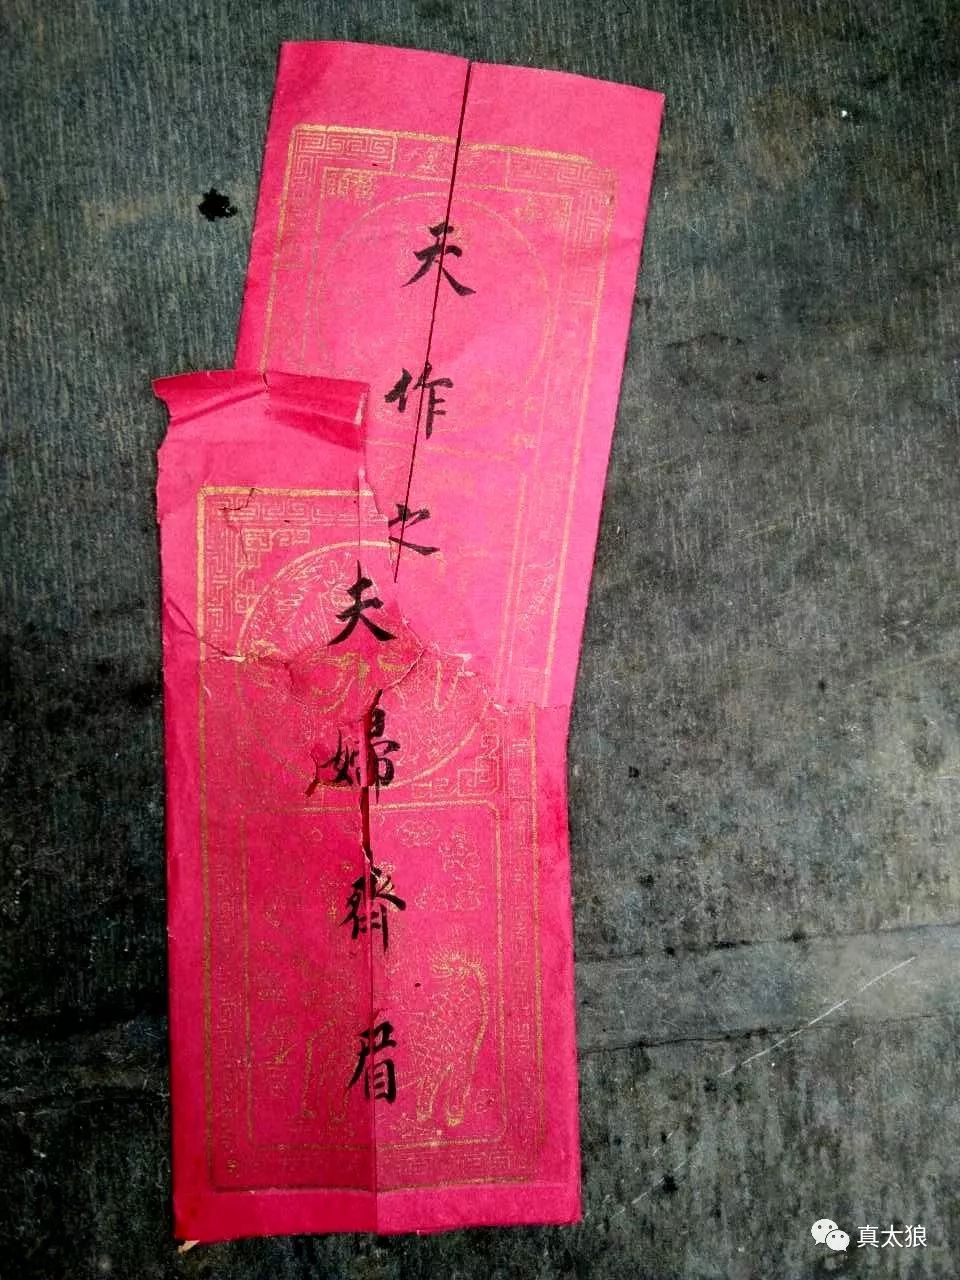 天作之
夫婦齊眉
真太狼